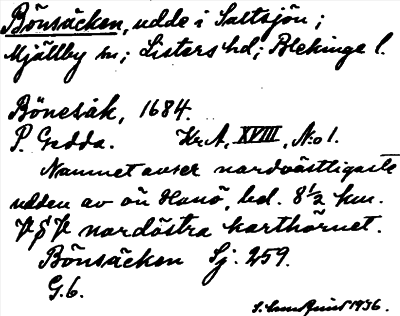 Bönsäcken, udde i Saltsjön;
Mjällby sn; Listers hd; Blekinge l.
Bönesäk, 1684.
P. Gedda. Kr.A, XVIII, No 1.
Namnet avser nordvästligaste
udden av ön Hanö, bel. 8½ km.
nordöstra karthörnet.
Bönsäcken Sj. 259.
G.b.
1936.